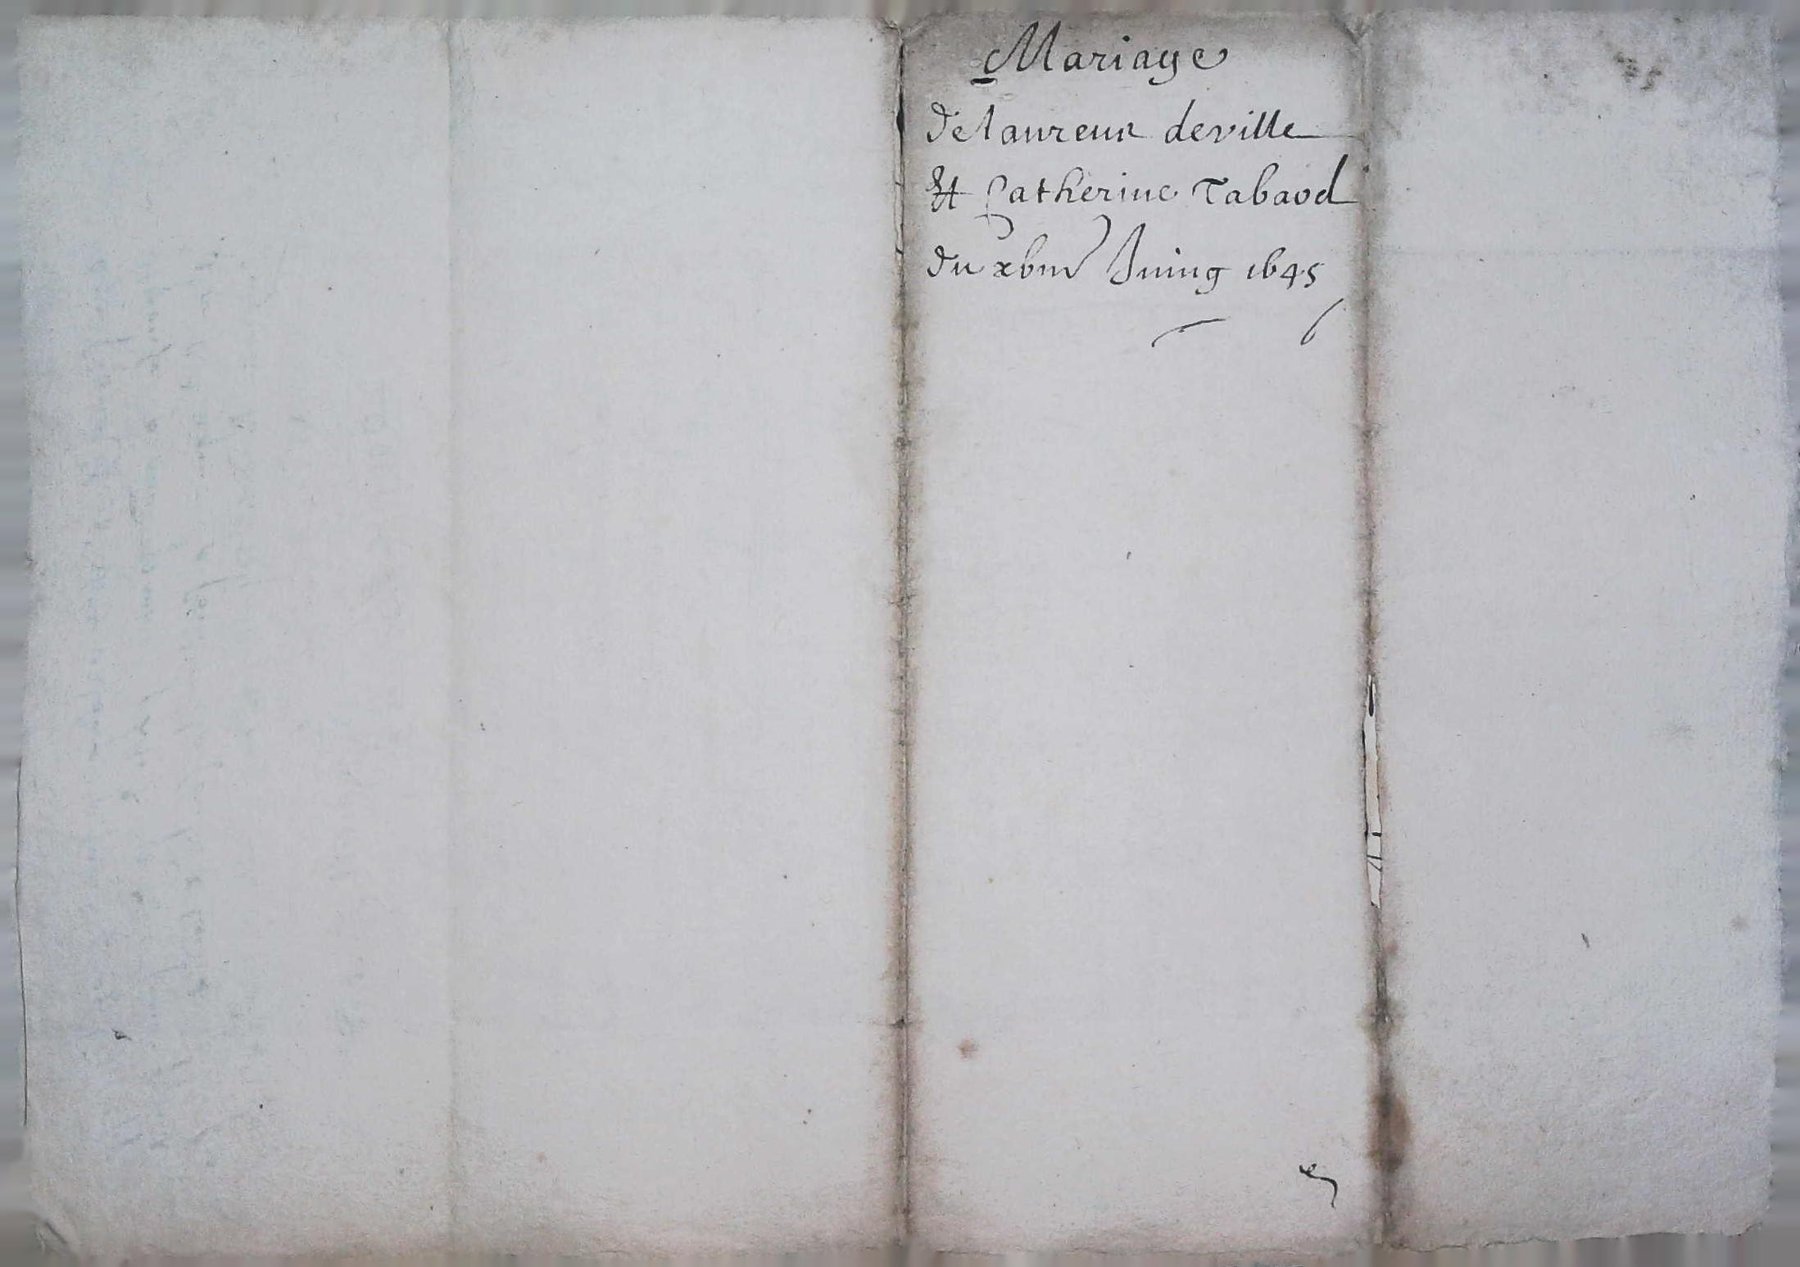 Mariage
de laurens deville
Et Catherine Tabaod
du xbm Juing 1645